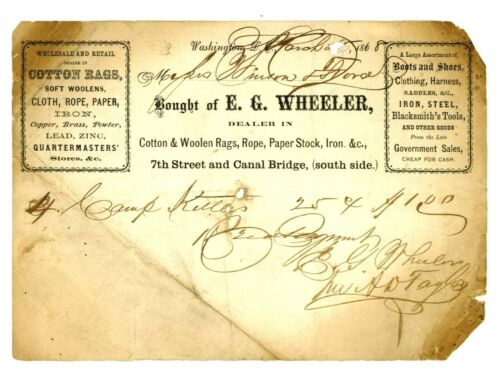 WHOLESALE AND RETAIL
DEALER IN
COTTON RAGS,
SOFT WOOLENS,
CLOTH, ROPE, PAPER,
IRON,
Copper, Brass, Pewter,
LEAD, ZINC,
QUARTERMASTERS'
Stores, &c.
Washington, D. C. 1868
Messrs
Bought of E. G. WHEELER,
DEALER IN
Cotton & Woolen Rags, Rope, Paper Stock, Iron. &c.,
7th Street and Canal Bridge, (south side.)
A Large Assortment of
Boots and Shoes,
Clothing, Harness,
SADDLES, &C.,
IRON, STEEL,
Blacksmith's Tools,
AND OTHER GOODS
From the Late
Government Sales,
CHEAP FOR CASH.
4 Camp Kettles 25 ¢ $1.00
Rec Payment
E. G. Wheeler